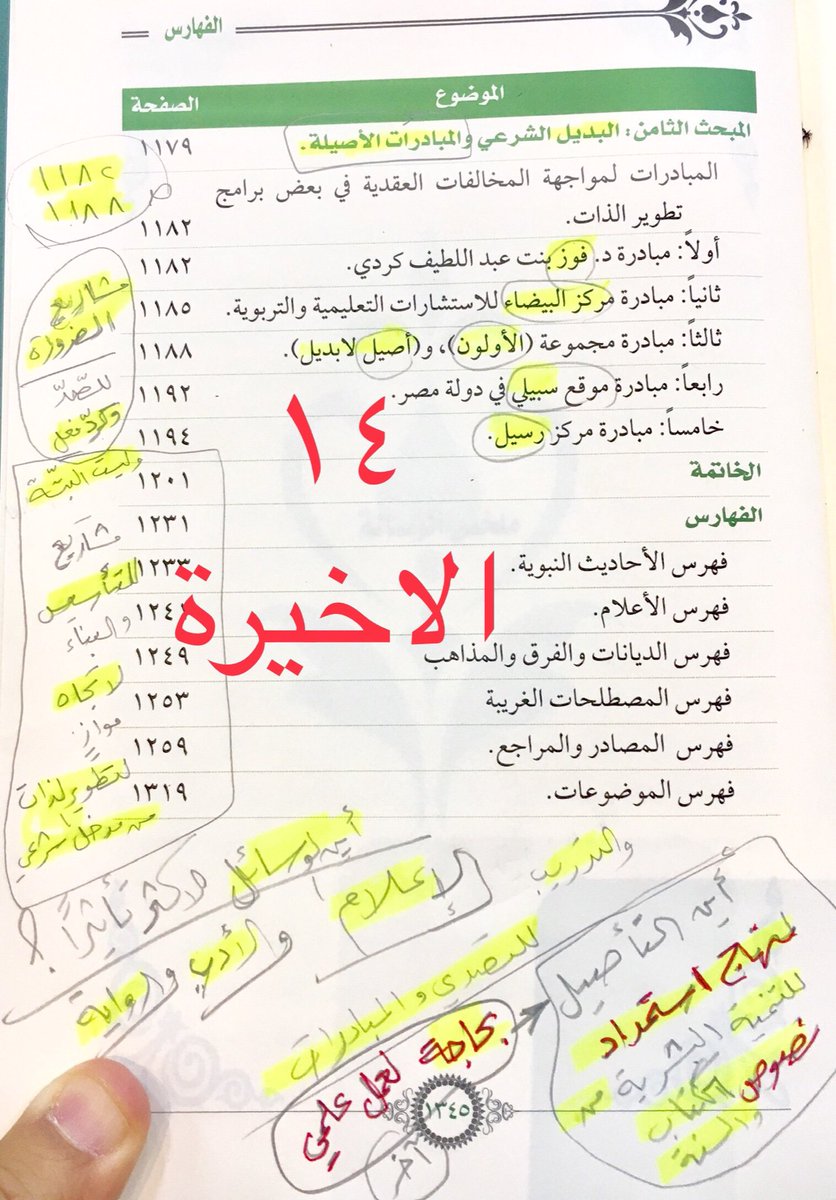 الفهارس
الموضوع الصفحة
المبحث الثامن: البديل الشرعي والمبادرات الأصيلة. ١١٧٩
المبادرات لمواجهة المخالفات العقدية في بعض برامج
تطوير الذات. ١١٨٢
أولاً: مبادرة د. فوز بنت عبد اللطيف كردي. ١١٨٢
ثانياً: مبادرة مركز البيضاء للاستشارات التعليمية والتربوية. ١١٨٥
ثالثاً: مبادرة مجموعة (الأولون)، و(أصيل لابديل). ١١٨٨
رابعاً: مبادرة موقع سبيلي في دولة مصر. ١١٩٢
خامساً: مبادرة مركز رسيل. ١١٩٤
الخاتمة ١٢٠١
الفهارس ١٢٣١
فهرس الأحاديث النبوية. ١٢٣٣
فهرس الأعلام.
فهرس الديانات والفرق والمذاهب ١٢٤٩
فهرس المصطلحات الغريبة ١٢٥٣
فهرس المصادر والمراجع. ١٢٥٩
فهرس الموضوعات. ١٣١٩
١٤
الاخيرة
ص ١١٨٢
١١٨٨
مشاريع
الضرورة
للصّدّ
وكردّ فعل
وليت البتّة
مشاريع
للتأسيس
والبناء
لاتجاه
موازٍ
لتطوير لذات
من مدخل شرعي
أين لوسائل الاكثر تأثيراً؟
والتدريب
الإعلام
والأدب والرواية
للتصدي والمبادرات
بحاجة لعمل علمي
آخر
أين التأصيل
لمنهاج استمداد
للتنمية البشرية من
نصوص الكتاب
والسنة
١٣٤٥